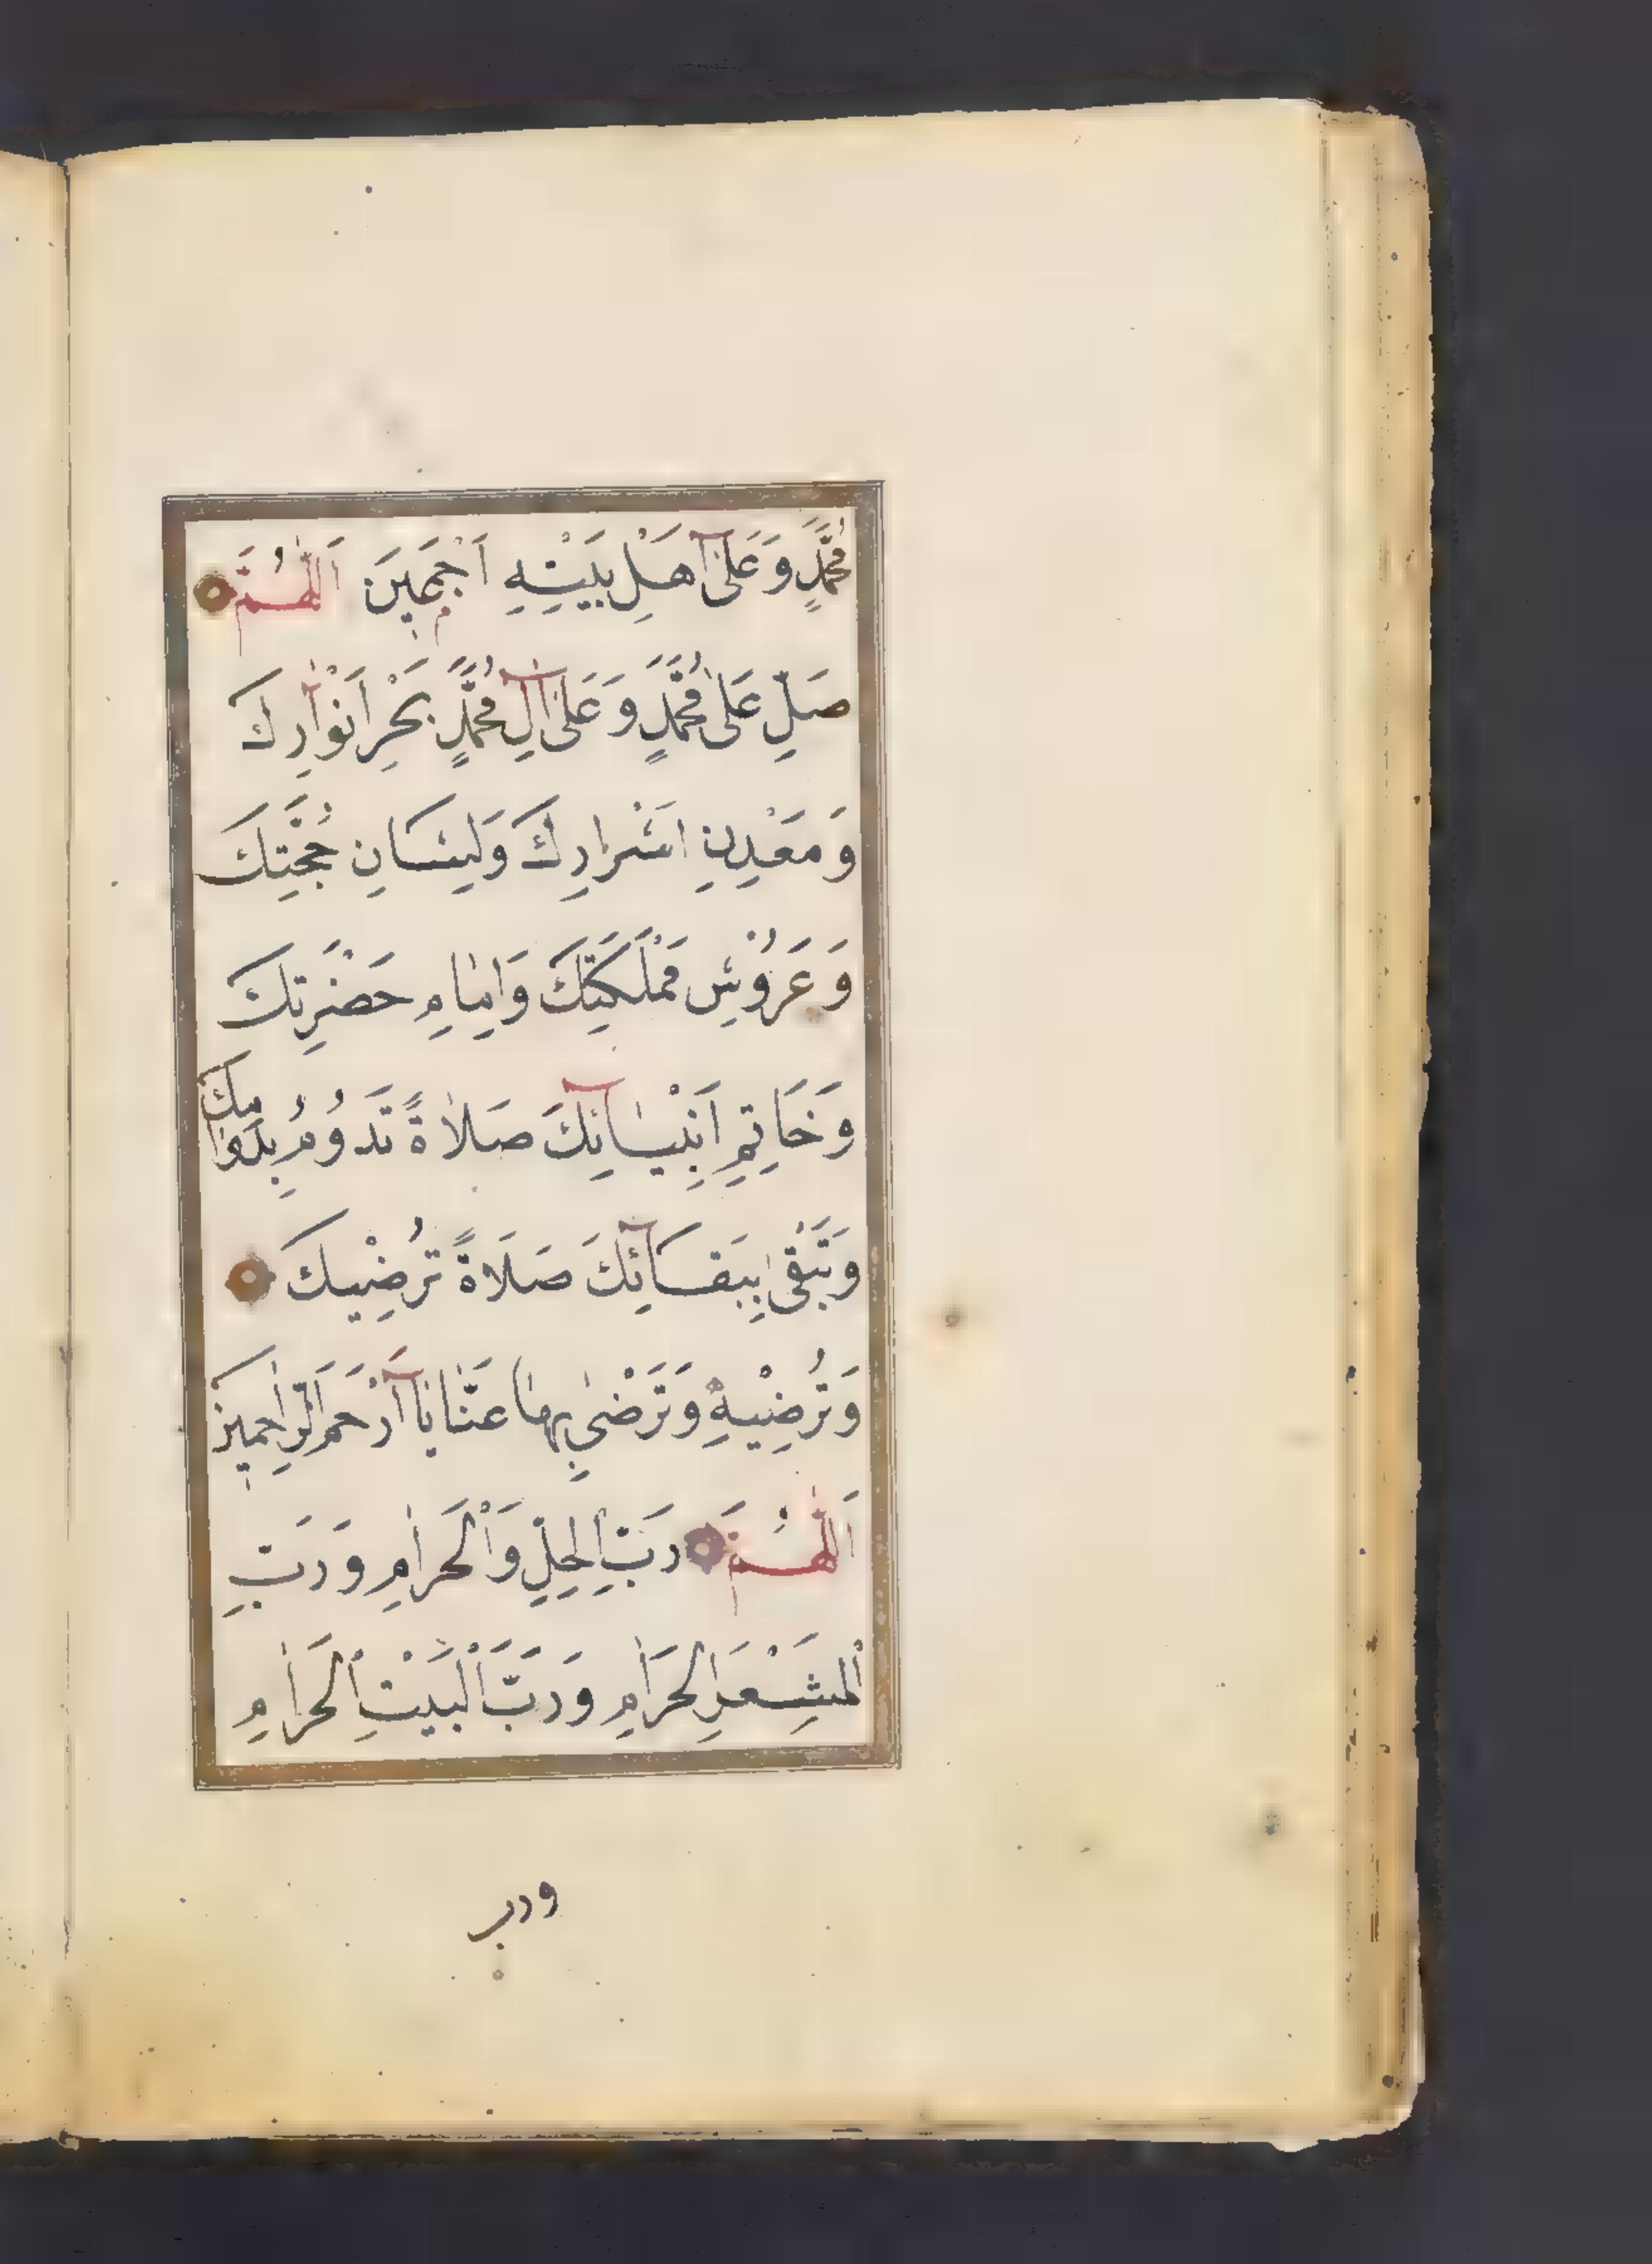 مُحَمَّدٍ وَعَلَىٰٓ اَهْلِ بَيْتِهِ اَجْمَعِينَ اَللّٰهُمَّ
صَلِّ عَلٰى مُحَمَّدٍ وَعَلٰىٓ اٰلِ مُحَمَّدٍ بَحْرِ اَنْوَارِكَ
وَمَعْدِنِ اَسْرَارِكَ وَلِسَانِ حُجَّتِكَ
وَعَرُوْسِ مَمْلَكَتِكَ وَاِمَامِ حَضْرَتِكَ
وَخَاتِمِ اَنْبِيَآئِكَ صَلَاةً تَدُوْمُ بِدَوَامِكَ
وَتَبْقٰى بِبَقَآئِكَ صَلَاةً تُرْضِيْكَ
وَتُرْضِيْهِ وَتَرْضٰى بِهَا عَنَّا يَآ اَرْحَمَ الرَّاحِمِيْنَ
اَللّٰهُمَّ رَبَّ الْحِلِّ وَالْحَرَامِ وَرَبَّ
الْمَشْعَرِ الْحَرَامِ وَرَبَّ الْبَيْتِ الْحَرَامِ
ورب